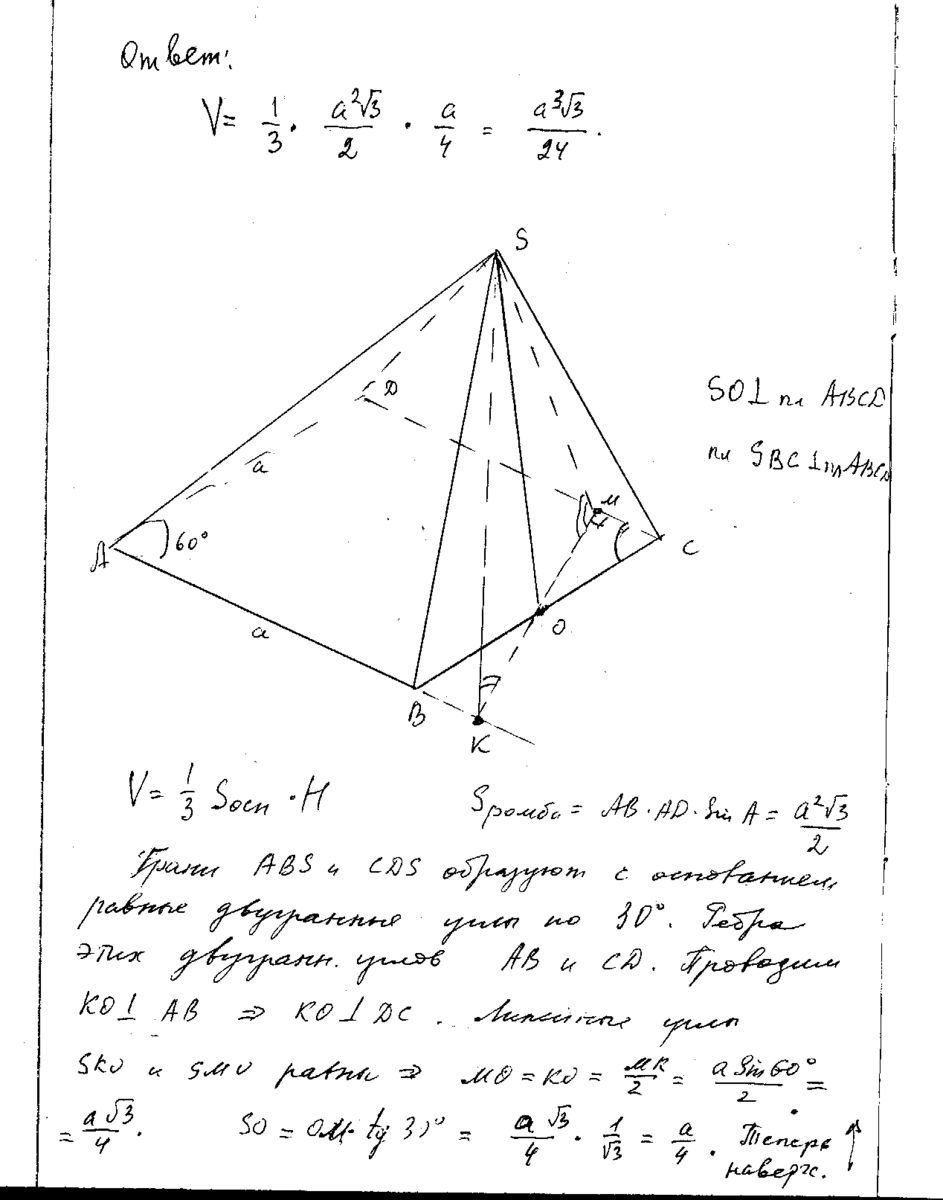 Ответ:
V = 1/3 · a²√3/2 · a/4 = a³√3/24.
S
D
a
A
60°
M
C
a
O
B
K
SO ⊥ пл ABCD
пл SBC ⊥ пл ABCD
V = 1/3 Sосн · H
Sромба = AB · AD · Sin A = a²√3/2
Грани ABS и CDS образуют с основанием
равные двугранные углы по 30°. Ребра
этих двугранн. углов AB и CD. Проводим
KO ⊥ AB ⇒ KO ⊥ DC. Линейные углы
SKO и SMO равны ⇒ MO = KO = MK/2 = a Sin 60°/2 =
= a√3/4. SO = OM · tg 30° = a√3/4 · 1/√3 = a/4. Теперь
наверх. ↑